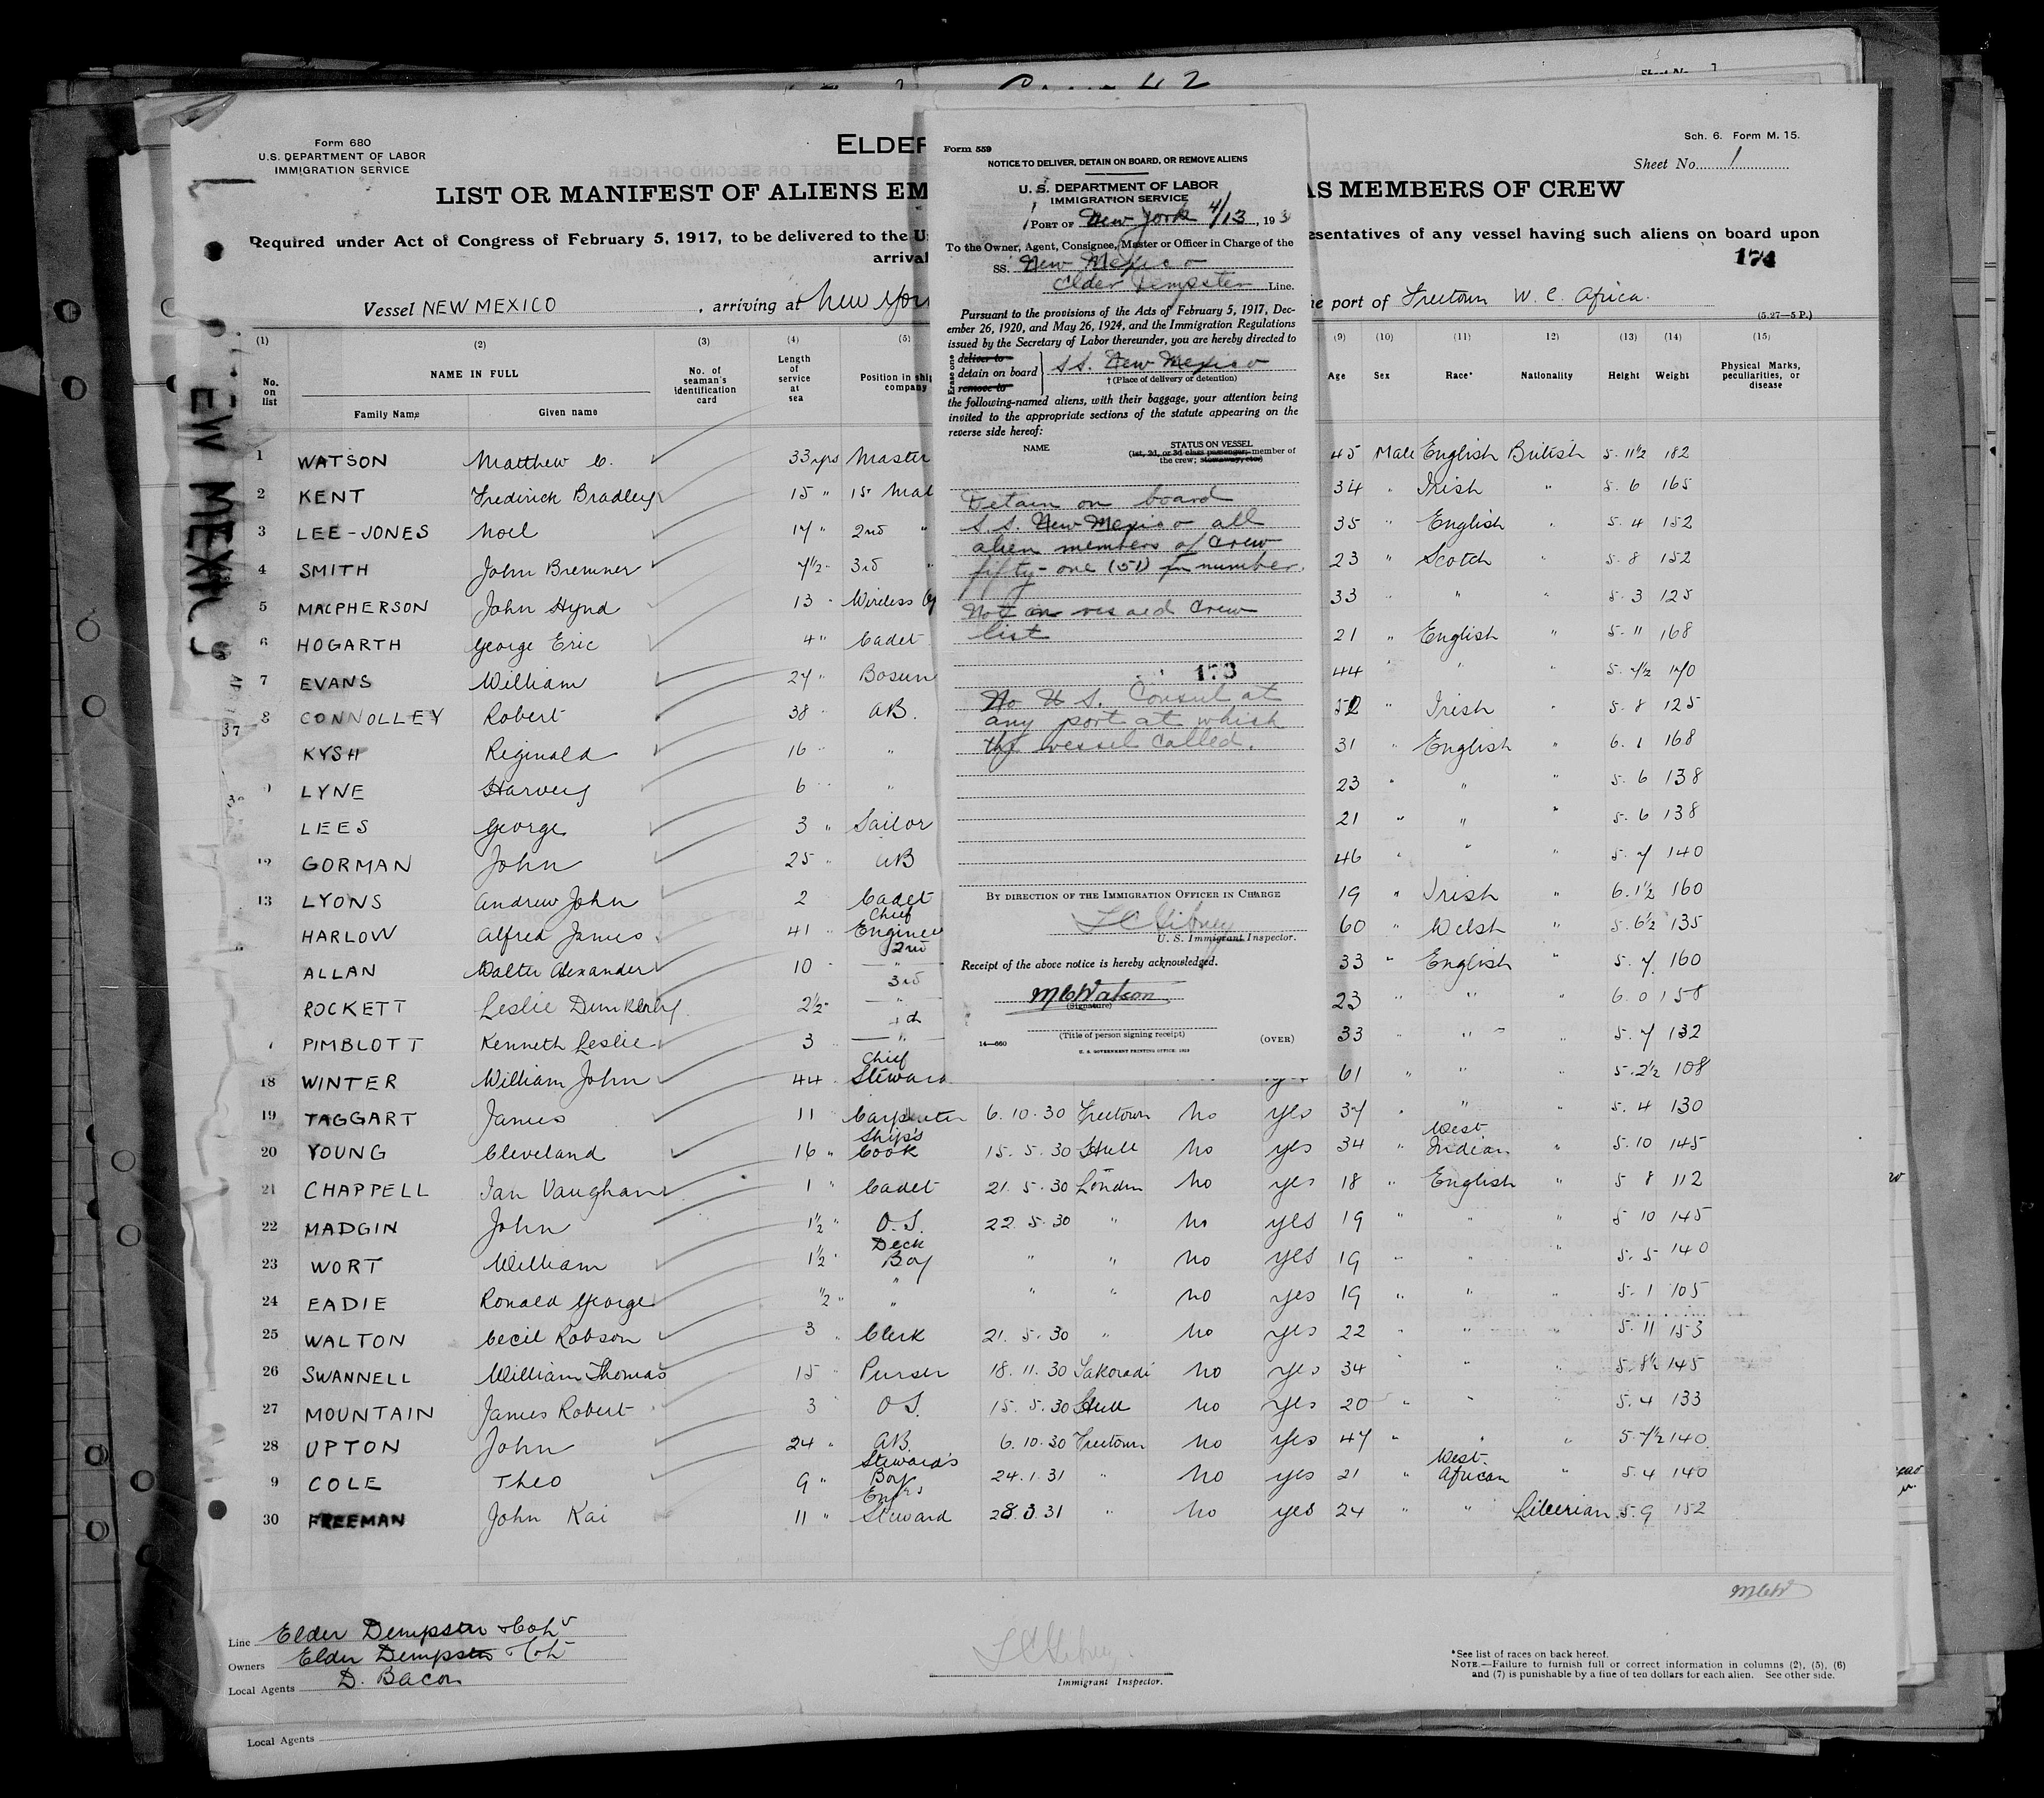 Crew 42
Sheet No. 1
Form 680
U.S. DEPARTMENT OF LABOR
IMMIGRATION SERVICE
ELDER
Sch. 6. Form M. 15.
Sheet No. 1
LIST OR MANIFEST OF ALIENS EM AS MEMBERS OF CREW
Required under Act of Congress of February 5, 1917, to be delivered to the U esentatives of any vessel having such aliens on board upon
arrival
174
Vessel NEW MEXICO , arriving at New York port of Freetown W. C. Africa.
(5.27—5 P.)
EW MEXICO
37
Form 559
NOTICE TO DELIVER, DETAIN ON BOARD, OR REMOVE ALIENS
U. S. DEPARTMENT OF LABOR
IMMIGRATION SERVICE
PORT OF New York 4/13, 193
To the Owner, Agent, Consignee, Master or Officer in Charge of the
SS. New Mexico
Elder Dempster Line.
Pursuant to the provisions of the Acts of February 5, 1917, Dec-
ember 26, 1920, and May 26, 1924, and the Immigration Regulations
issued by the Secretary of Labor thereunder, you are hereby directed to
Erase one
deliver to
detain on board
remove to
SS. New Mexico
† (Place of delivery or detention)
the following-named aliens, with their baggage, your attention being
invited to the appropriate sections of the statute appearing on the
reverse side hereof:
NAME
STATUS ON VESSEL
(1st, 2d, or 3d class passenger; member of
the crew; stowaway, etc.)
Detain on board
S.S. New Mexico all
alien members of crew
fifty-one (51) in number.
Not on visaed crew
list
173
No U S. Consul at
any port at which
the vessel called.
BY DIRECTION OF THE IMMIGRATION OFFICER IN CHARGE
U. S. Immigrant Inspector.
Receipt of the above notice is hereby acknowledged.
M C Watson
(Signature)
(Title of person signing receipt)
14—660
(OVER)
U. S. GOVERNMENT PRINTING OFFICE: 1929
(1) (2) (3) (4) (5) (9) (10) (11) 12) (13) (14) (15)
No. on list
NAME IN FULL
Family Name Given name
No. of seaman's identification card
Length of service at sea
Position in ship company
Age Sex Race* Nationality Height Weight
Physical Marks, peculiarities, or disease
1 WATSON Matthew C. 33 yrs Master 45 Male English British 5. 11½ 182
2 KENT Frederick Bradley 15 " 1st Mat 34 " Irish " 5. 6 165
3 LEE-JONES Noel 17 " 2nd " 35 " English " 5. 4 152
4 SMITH John Bremner 7½ " 3rd " 23 " Scotch " 5. 8 152
5 MACPHERSON John Hynd 13 " Wireless Op 33 " " " 5. 3 125
6 HOGARTH George Eric 4 " Cadet 21 " English " 5. 11 168
7 EVANS William 27 " Bosun 44 " " " 5. 7½ 170
8 CONNOLLEY Robert 38 " AB. 52 " Irish " 5. 8 125
KYSH Reginald 16 " " 31 " English " 6. 1 168
LYNE Harvey 6 " " 23 " " " 5. 6 138
LEES George 3 " Sailor 21 " " " 5. 6 138
12 GORMAN John 25 " AB 46 " " " 5. 7 140
13 LYONS Andrew John 2 Cadet 19 " Irish " 6. 1½ 160
HARLOW Alfred James 41 " Chief Engineer 60 " Welsh " 5. 6½ 135
ALLAN Walter Alexander 10 " 2nd " 33 " English " 5. 7 160
ROCKETT Leslie Dunkerley 2½ " 3rd " 23 " " " 6. 0 158
PIMBLOTT Kenneth Leslie 3 " 33 " " " 5. 7 132
18 WINTER William John 44 " Chief Steward 61 " " " 5. 2½ 108
19 TAGGART James 11 " Carpenter 6. 10. 30 Freetown No yes 37 " " " 5. 4 130
20 YOUNG Cleveland 16 " Ship's Cook 15. 5. 30 Hull No yes 34 " West Indian " 5. 10 145
21 CHAPPELL Ian Vaughan 1 " Cadet 21. 5. 30 London No yes 18 " English " 5 8 112
22 MADGIN John 1½ " O.S. 22. 5. 30 " No yes 19 " " " 5 10 145
23 WORT William 1½ " Deck Boy " " No yes 19 " " " 5. 5 140
24 EADIE Ronald George ½ " " " " no yes 19 " " " 5. 1 105
25 WALTON Cecil Robson 3 " Clerk 21. 5. 30 " No yes 22 " " " 5. 11 153
26 SWANNELL William Thomas 15 " Purser 18. 11. 30 Takoradi no yes 34 " " " 5. 8½ 145
27 MOUNTAIN James Robert 3 O S. 15. 5. 30 Hull no yes 20 " " " 5. 4 133
28 UPTON John 24 " AB. 6. 10. 30 Freetown no yes 47 " " " 5. 7½ 140
9 COLE Theo 9 " Steward's Boy 24. 1. 31 " No yes 21 " West African " 5. 4 140
30 FREEMAN John Kai 11 " Engrs Steward 28. 3. 31 " No yes 24 " " Liberian 5. 9 152
MCW
Line Elder Dempster & Co Ld
Owners Elder Dempster & Co Ld
Local Agents D. Bacon
Immigrant Inspector.
*See list of races on back hereof.
NOTE.—Failure to furnish full or correct information in columns (2), (5), (6)
and (7) is punishable by a fine of ten dollars for each alien. See other side.
Local Agents